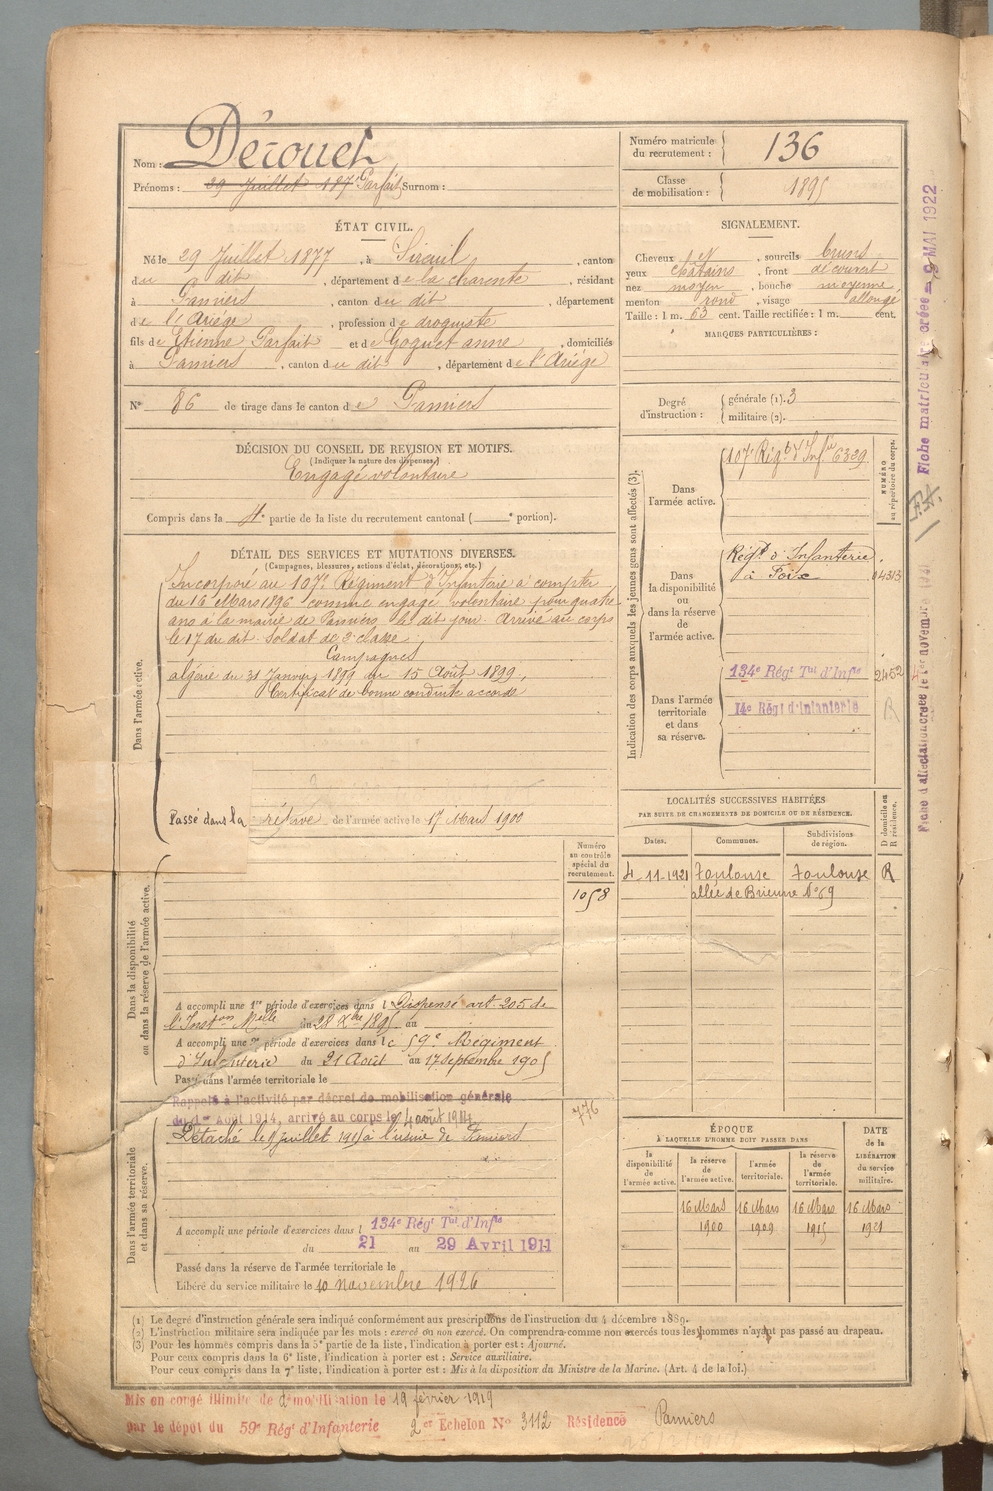 Nom : Dérouet
Prénoms : 29 Juillet 187 Parfait Surnom :
Numéro matricule du recrutement : 136
Classe de mobilisation : 1895
ÉTAT CIVIL.
Né le 29 Juillet 1877, à Sireuil, canton
du dit, département de la charente, résidant
à Pamiers, canton du dit, département
de l'Ariège, profession de droguiste
fils de Etienne Parfait et de Goguet anne, domiciliés
à Pamiers, canton du dit, département de l'Ariège
N° 86 de tirage dans le canton de Pamiers
SIGNALEMENT.
Cheveux et, sourcils bruns
yeux chatains, front découvert
nez moyen, bouche moyenne,
menton rond, visage allongé
Taille : 1 m. 63 cent. Taille rectifiée : 1 m. cent.
MARQUES PARTICULIÈRES :
Degré d'instruction : générale (1). 3
militaire (2).
DÉCISION DU CONSEIL DE REVISION ET MOTIFS.
(Indiquer la nature des dispenses.)
Engagé volontaire
Compris dans la 4e partie de la liste du recrutement cantonal ( e portion).
DÉTAIL DES SERVICES ET MUTATIONS DIVERSES.
(Campagnes, blessures, actions d'éclat, décorations, etc.)
Dans l'armée active.
Incorporé au 107e Régiment d'Infanterie à compter
du 16 Mars 1896 comme engagé volontaire pour quatre
ans à la mairie de Pamiers le dit jour. Arrivé au corps
le 17 du dit. Soldat de 2e classe.
Campagnes
algérie du 31 Janvier 1899 au 15 Août 1899.
Certificat de bonne conduite accordé
Passé dans la réserve de l'armée active le 17 Mars 1900
Indication des corps auxquels les jeunes gens sont affectés (3).
NUMÉRO au répertoire du corps.
Dans l'armée active.
107e Régt d'Infie 6339
Dans la disponibilité ou dans la réserve de l'armée active.
Régt d'Infanterie
à Foix
04313
Dans l'armée territoriale et dans sa réserve.
134e Régt Tal d'Infie 2452
14e Régt d'Infanterie R
LOCALITÉS SUCCESSIVES HABITÉES
PAR SUITE DE CHANGEMENTS DE DOMICILE OU DE RÉSIDENCE.
Dates. Communes. Subdivisions de région. D domicile ou R résidence.
4-11-1921 Toulouse Toulouse R
allée de Brienne N° 69
Numéro au contrôle spécial du recrutement.
1058
Dans la disponibilité ou dans la réserve de l'armée active.
A accompli une 1re période d'exercices dans l Dispensé art. 205 de
l'Inston Mlle du 28 Xbre 1895 au
A accompli une 2e période d'exercices dans le 59e Régiment
d'Infanterie du 21 Août au 17 Septembre 1905
Passé dans l'armée territoriale le
Dans l'armée territoriale et dans sa réserve.
Rappelé à l'activité par décret de mobilisation générale
du 1er Août 1914, arrivé au corps le 4 août 1914
Détaché le 8 juillet 1915 à l'usine de Pamiers
776
A accompli une période d'exercices dans l 134e Régt Tal d'Infie
du 21 au 29 Avril 1911
Passé dans la réserve de l'armée territoriale le
Libéré du service militaire le 10 novembre 1926
ÉPOQUE
À LAQUELLE L'HOMME DOIT PASSER DANS
la disponibilité de l'armée active. la réserve de l'armée active. l'armée territoriale. la réserve de l'armée territoriale. DATE de la LIBÉRATION du service militaire.
16 Mars 16 Mars 16 Mars 16 Mars
1900 1909 1915 1921
(1) Le degré d'instruction générale sera indiqué conformément aux prescriptions de l'instruction du 4 décembre 1889.
(2) L'instruction militaire sera indiquée par les mots : exercé ou non exercé. On comprendra comme non exercés tous les hommes n'ayant pas passé au drapeau.
(3) Pour les hommes compris dans la 5e partie de la liste, l'indication à porter est : Ajourné.
Pour ceux compris dans la 6e liste, l'indication à porter est : Service auxiliaire.
Pour ceux compris dans la 7e liste, l'indication à porter est : Mis à la disposition du Ministre de la Marine. (Art. 4 de la loi.)
Mis en congé illimité de démobilisation le 19 février 1919
par le dépôt du 59e Régt d'Infanterie 2er Echelon N° 3112 Résidence Pamiers
Fiche matriculaire créée = 9 MAI 1922
F.A.
Fiche d'affectation créée le 1er novembre